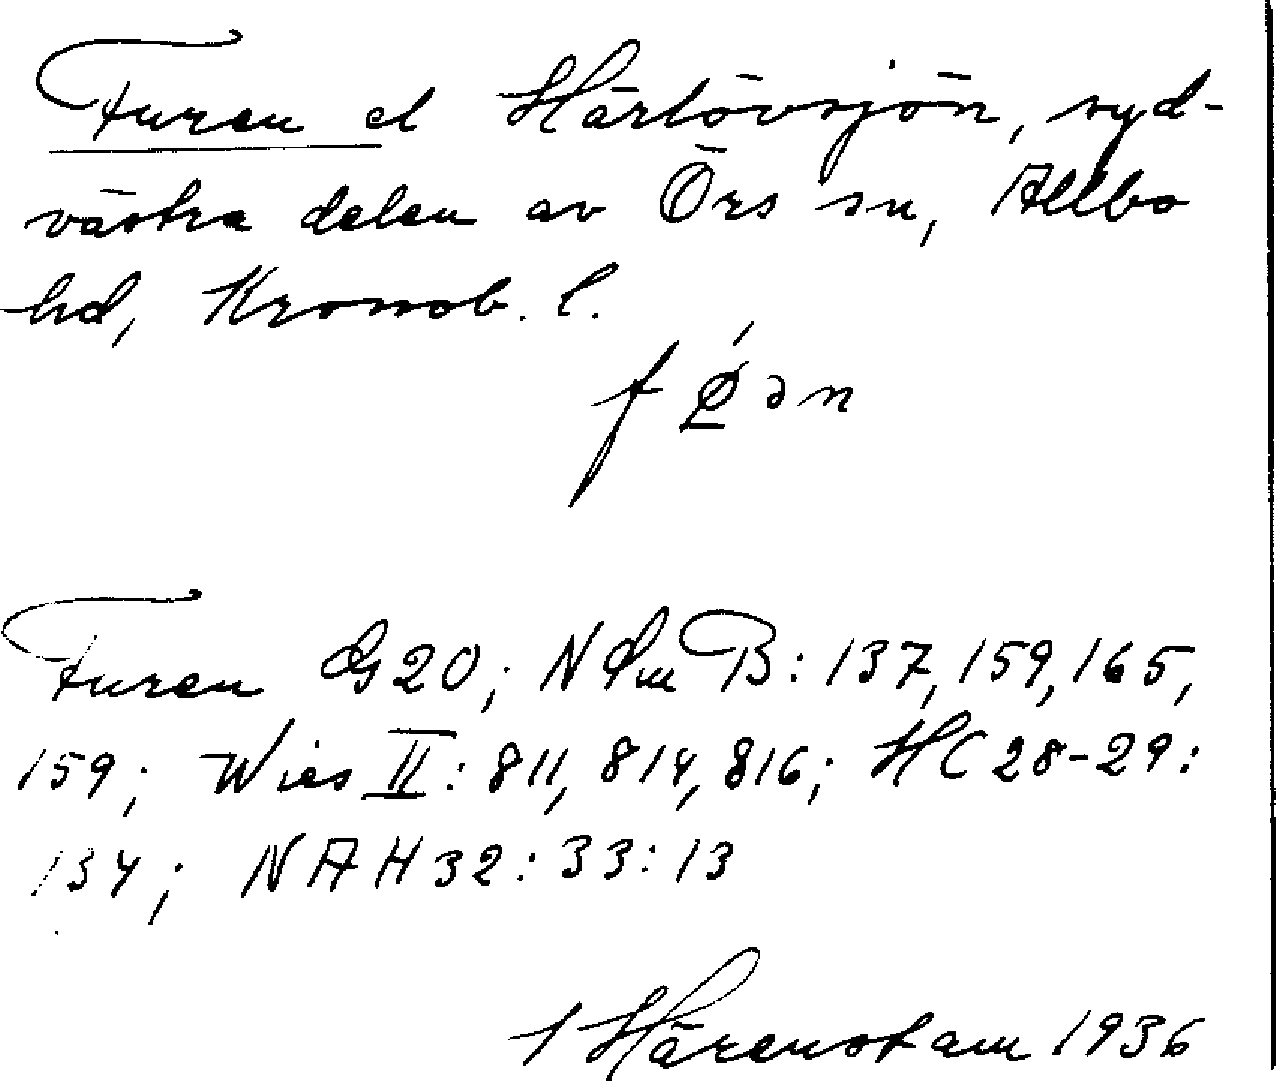 Furen el Härlövsjön, syd-
västra delen av Örs sn, Allbo
hd, Kronob. l.
Furen G20; N Sm B: 137, 159, 165,
159; Wies II: 811, 814, 816; HC 28-29:
134; NAH 32: 33: 13
Härenstam 1936